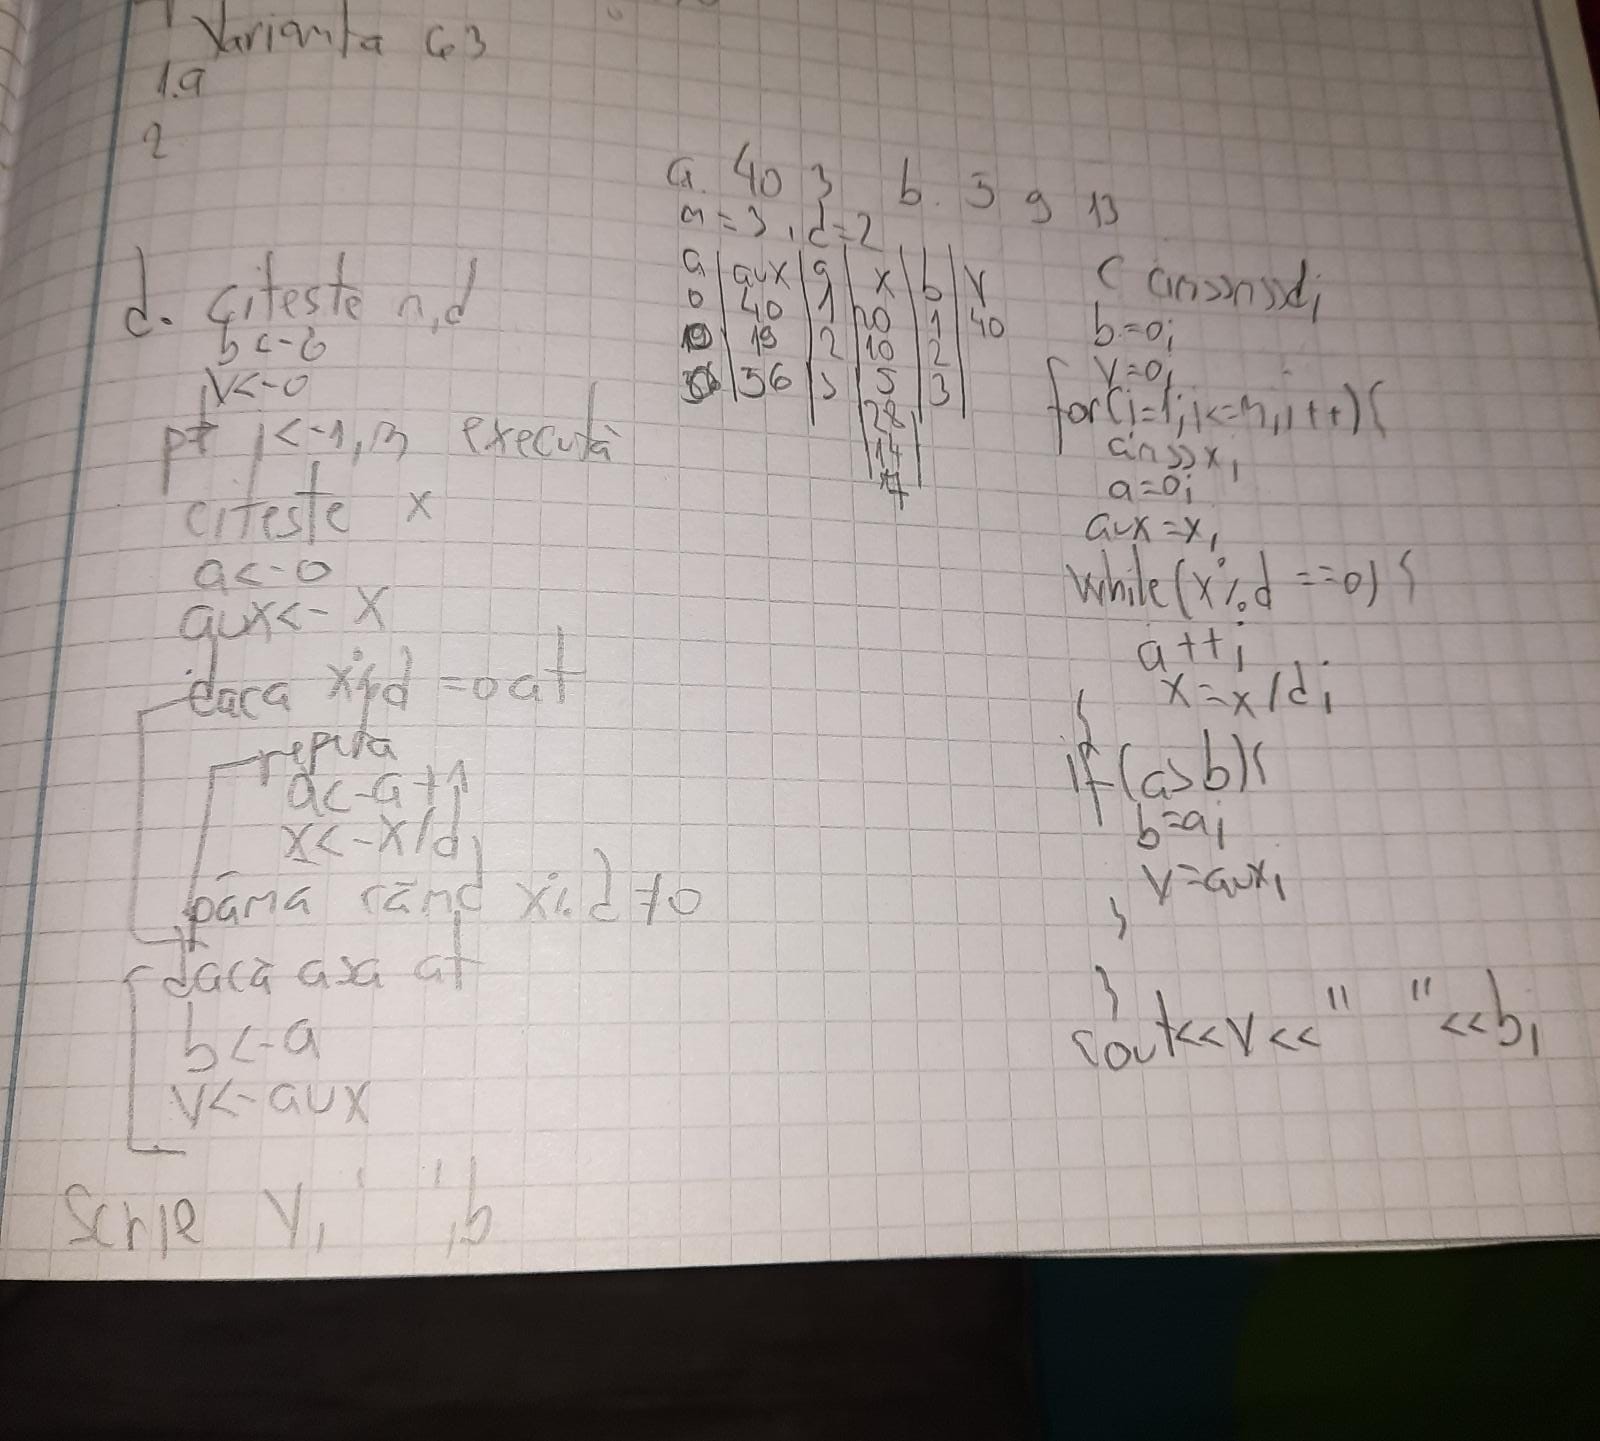 Varianta 63
1.a
2
a. 40 3 b. 5 9 13
n=3, d=2
a | aux | a | x | b | v
0 | 40 | 1 | 20 | 1 | 40
19 | 2 | 10 | 2
56 | 3 | 5 | 3
28
14
7
d. citeste n,d
b<-0
v<-0
pt i<-1,n execută
citeste x
a<-0
aux<-x
daca x%d =0 at
repeta
a<-a+1
x<-x/d
până când x%d≠0
dacă a>a at
b<-a
v<-aux
Scrie v,' ',b
c cin>>n>>d;
b=0;
v=0;
for(i=1;i<=n;i++){
cin>>x;
a=0;
aux=x;
while(x%d==0){
a++;
x=x/d;
}
if(a>b){
b=a;
v=aux;
}
}
cout<<v<<" "<<b;